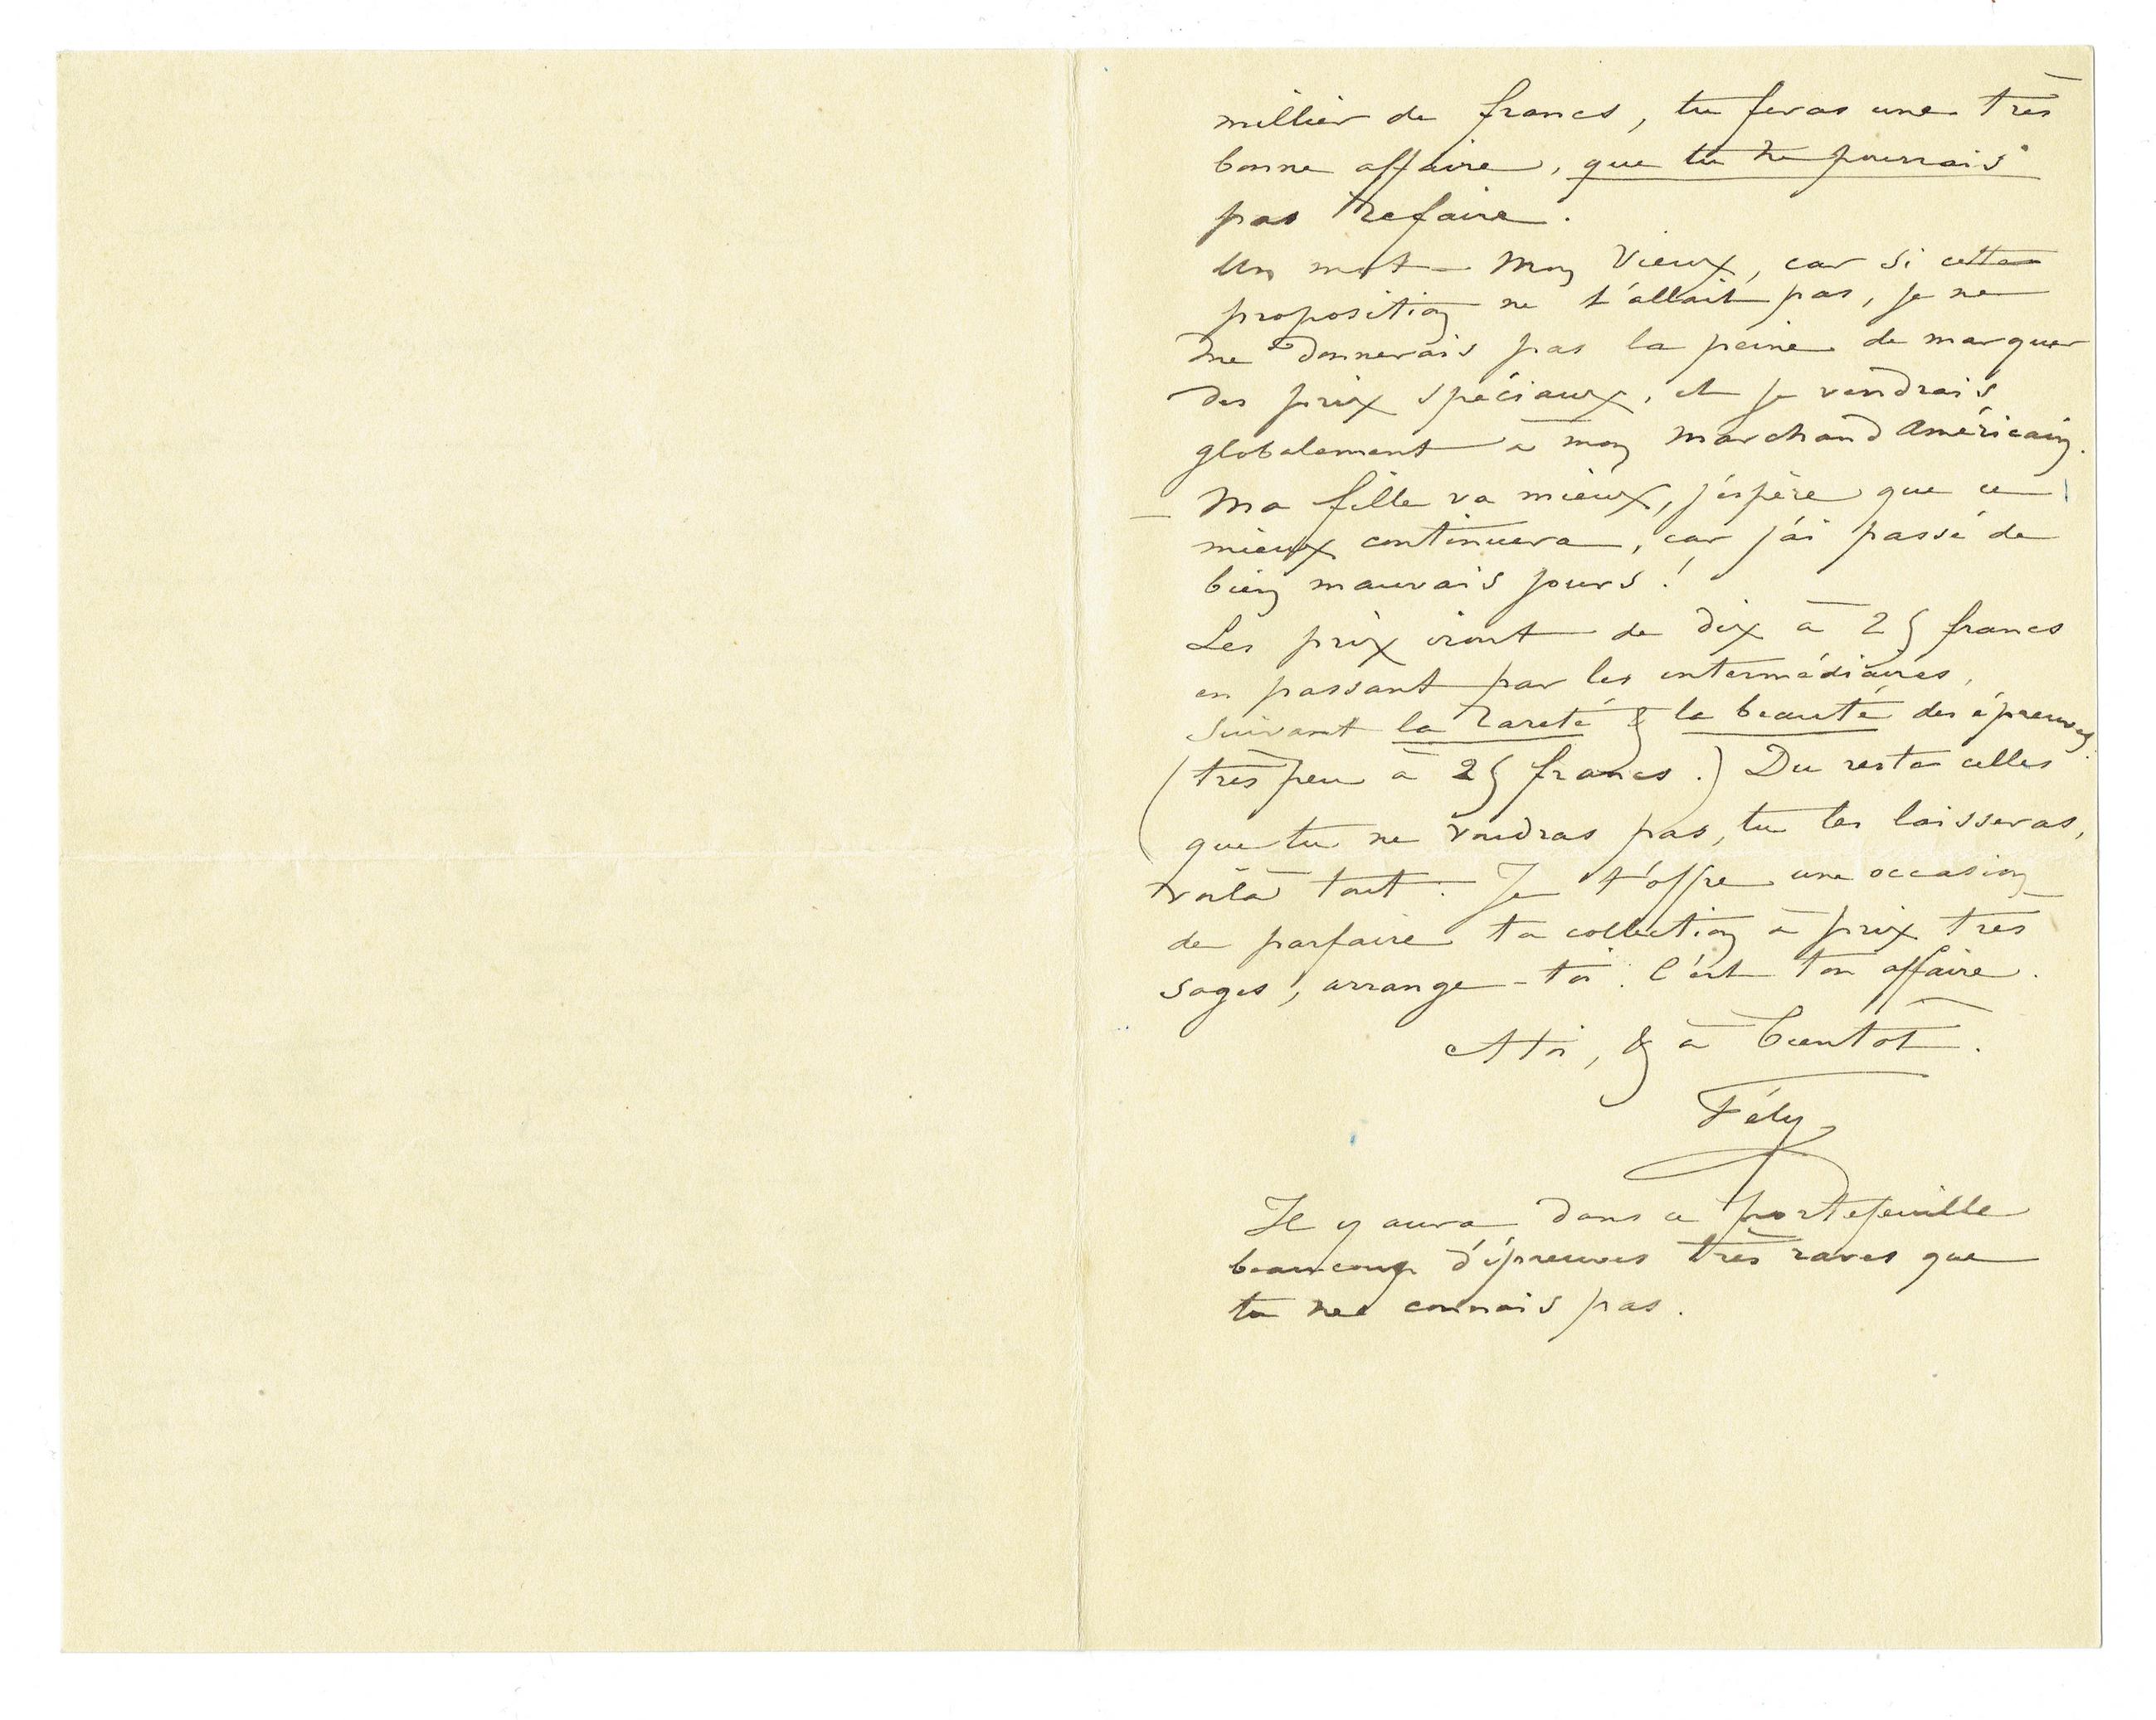 millier de francs, tu feras une très
bonne affaire, que tu ne pourrais
pas refaire.
Un mot – Mon Vieux, car si cette
proposition ne t'allait pas, je ne
me donnerais pas la peine de marquer
des prix spéciaux, et je vendrais
globalement à mon marchand Américain.
– Ma fille va mieux, j'espère que ce
mieux continuera, car j'ai passé de
bien mauvais jours !
Les prix iront de dix à 25 francs
en passant par les intermédiaires,
suivant la rareté & la beauté des épreuves.
(très peu à 25 francs.) Du reste celles
que tu ne voudras pas, tu les laisseras,
voilà tout. Je t'offre une occasion
de parfaire ta collection à prix très
sages, arrange-toi. C'est ton affaire.
A toi, & à bientôt.
Fély
Il y aura dans ce portefeuille
beaucoup d'épreuves très rares que
tu ne connais pas.